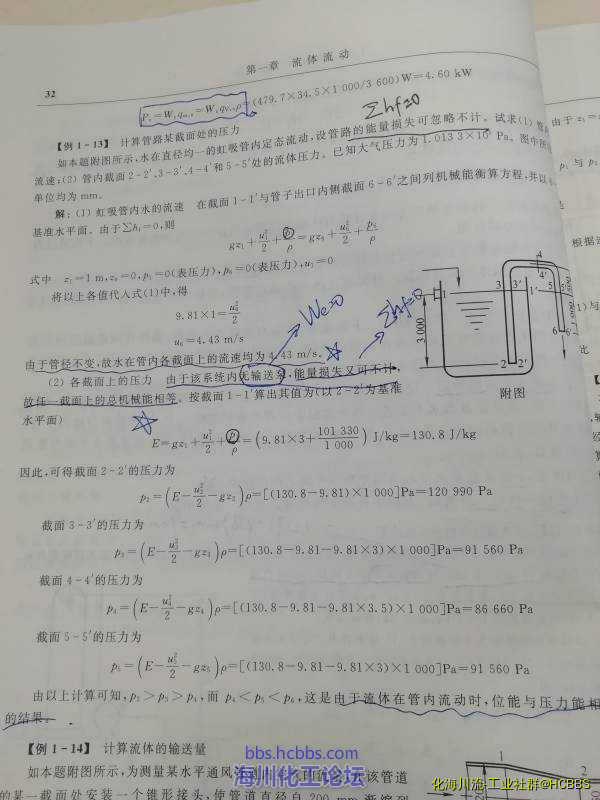 32
第一章 流体流动
Pe=W,qm,s=W,qV,sρ=(479.7×34.5×1 000/3 600)W=4.60 kW
Σhf=0
【例 1-13】 计算管路某截面处的压力
如本题附图所示,水在直径均一的虹吸管内定态流动,设管路的能量损失可忽略不计。试求(1)管内
由于 z₁=
流速;(2) 管内截面 2-2′,3-3′,4-4′和 5-5′处的流体压力。已知大气压力为 1.013 3×10⁵ Pa。图中所
p₁ 与 p₂
单位均为 mm。
解:(1) 虹吸管内水的流速 在截面 1-1′与管子出口内侧截面 6-6′之间列机械能衡算方程,并以
基准水平面。由于Σhf=0,则
gz₁+u₁²/2+p₁/ρ=gz₆+u₆²/2+p₆/ρ
根据
式中 z₁=1 m,z₆=0,p₁=0(表压力),p₆=0(表压力),u₁=0
将以上各值代入式(1)中,得
9.81×1=u₆²/2
We=0
Σhf=0
u₆=4.43 m/s
由于管径不变,故水在管内各截面上的流速均为 4.43 m/s。
(2) 各截面上的压力 由于该系统内无输送泵,能量损失又可不计,
故任一截面上的总机械能相等。按截面 1-1′算出其值为(以 2-2′为基准
水平面)
4
4′
1
3
3′
1′
5
5′
3.000
6
6′
2
2′
附图
E=gz₁+u₁²/2+p₁/ρ=(9.81×3+101 330/1 000) J/kg=130.8 J/kg
因此,可得截面 2-2′的压力为
p₂=(E-u₂²/2-gz₂)ρ=[(130.8-9.81)×1 000]Pa=120 990 Pa
截面 3-3′的压力为
p₃=(E-u₃²/2-gz₃)ρ=[(130.8-9.81-9.81×3)×1 000]Pa=91 560 Pa
截面 4-4′的压力为
p₄=(E-u₄²/2-gz₄)ρ=[(130.8-9.81-9.81×3.5)×1 000]Pa=86 660 Pa
截面 5-5′的压力为
p₅=(E-u₅²/2-gz₅)ρ=[(130.8-9.81-9.81×3)×1 000]Pa=91 560 Pa
由以上计算可知,p₂>p₃>p₄,而 p₄<p₅<p₆,这是由于流体在管内流动时,位能与压力能相
的结果。
【例 1-14】 计算流体的输送量
bbs.hcbbs.com
如本题附图所示,为测量某水平通风
该管道
海川化工论坛
的某一截面处安装一个锥形接头,使管道直径自 200 mm 渐缩到
1
2
化海川流-工业社群@HCBBS